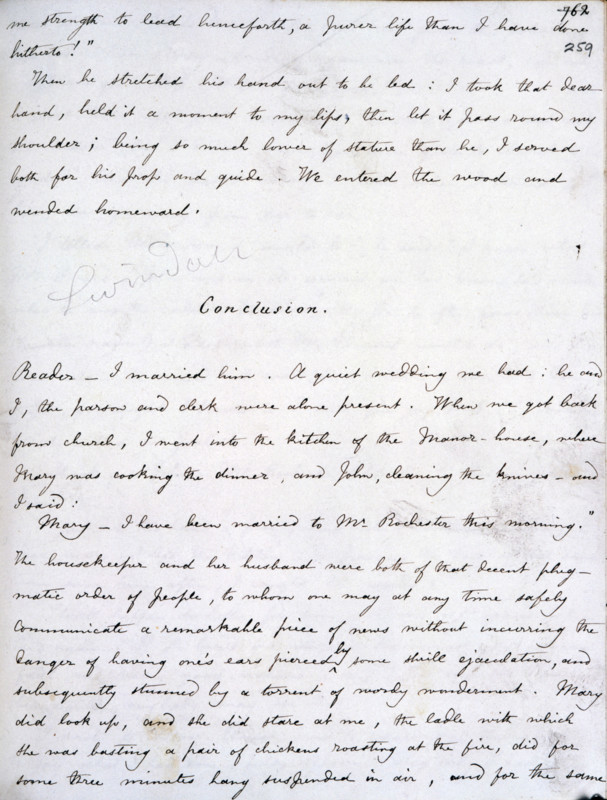 962
me strength to lead henceforth, a purer life than I have done
259
hitherto!"
Then he stretched his hand out to be led : I took that dear
hand, held it a moment to my lips, then let it pass round my
shoulder ; being so much lower of stature than he, I served
both for his prop and guide. We entered the wood and
wended homeward.
Conclusion.
Reader — I married him. A quiet wedding we had : he and
I, the parson and clerk were alone present. When we got back
from church, I went into the kitchen of the Manor-house, where
Mary was cooking the dinner, and John, cleaning the knives — and
I said:
Mary — I have been married to Mr Rochester this morning."
The housekeeper and her husband were both of that decent phleg-
matic order of people, to whom one may at any time safely
communicate a remarkable piece of news without incurring the
danger of having one's ears pierced by some shrill ejaculation, and
subsequently stunned by a torrent of wordy wonderment. Mary
did look up, and she did stare at me, the ladle with which
she was basting a pair of chickens roasting at the fire, did for
some three minutes hang suspended in air, and for the same